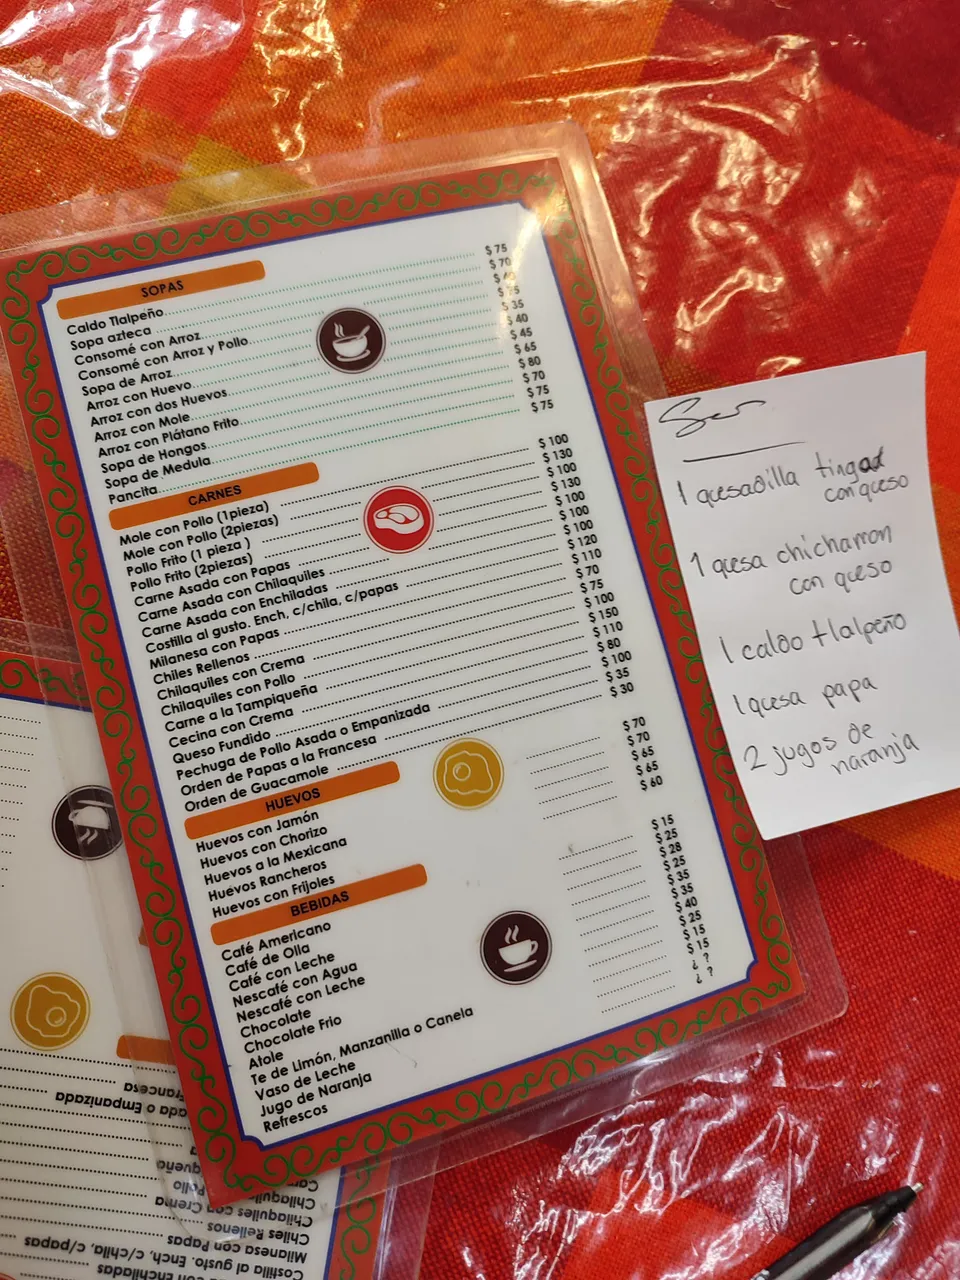 SOPAS
Caldo Tlalpeño $ 75
Sopa azteca $ 70
Consomé con Arroz
Consomé con Arroz y Pollo
Sopa de Arroz $ 35
Arroz con Huevo $ 40
Arroz con dos Huevos $ 45
Arroz con Mole $ 65
Arroz con Plátano Frito $ 80
Sopa de Hongos $ 70
Sopa de Medula $ 75
Pancita $ 75
CARNES
Mole con Pollo (1pieza) $ 100
Mole con Pollo (2piezas) $ 130
Pollo Frito (1 pieza ) $ 100
Pollo Frito (2piezas) $ 130
Carne Asada con Papas $ 100
Carne Asada con Chilaquiles $ 100
Carne Asada con Enchiladas $ 100
Costilla al gusto. Ench, c/chila, c/papas $ 120
Milanesa con Papas $ 110
Chiles Rellenos $ 70
Chilaquiles con Crema $ 75
Chilaquiles con Pollo $ 100
Carne a la Tampiqueña $ 150
Cecina con Crema $ 110
Queso Fundido $ 80
Pechuga de Pollo Asada o Empanizada $ 100
Orden de Papas a la Francesa $ 35
Orden de Guacamole $ 30
HUEVOS
Huevos con Jamón $ 70
Huevos con Chorizo $ 70
Huevos a la Mexicana $ 65
Huevos Rancheros $ 65
Huevos con Frijoles $ 60
BEBIDAS
Café Americano $ 15
Café de Olla $ 25
Café con Leche $ 28
Nescafé con Agua $ 25
Nescafé con Leche $ 35
Chocolate $ 35
Chocolate Frio $ 40
Atole $ 25
Te de Limón, Manzanilla o Canela $ 15
Vaso de Leche $ 15
Jugo de Naranja ¿ ?
Refrescos ¿ ?
1 quesadilla tinga
con queso
1 quesa chicharron
con queso
1 caldo tlalpeño
1 quesa papa
2 jugos de
naranja
ancesa
ada o Empanizada
Chilaquiles con Crema
Chiles Rellenos
Milanesa con Papas
Costilla al gusto. Ench, c/chila, c/papas
con Enchiladas